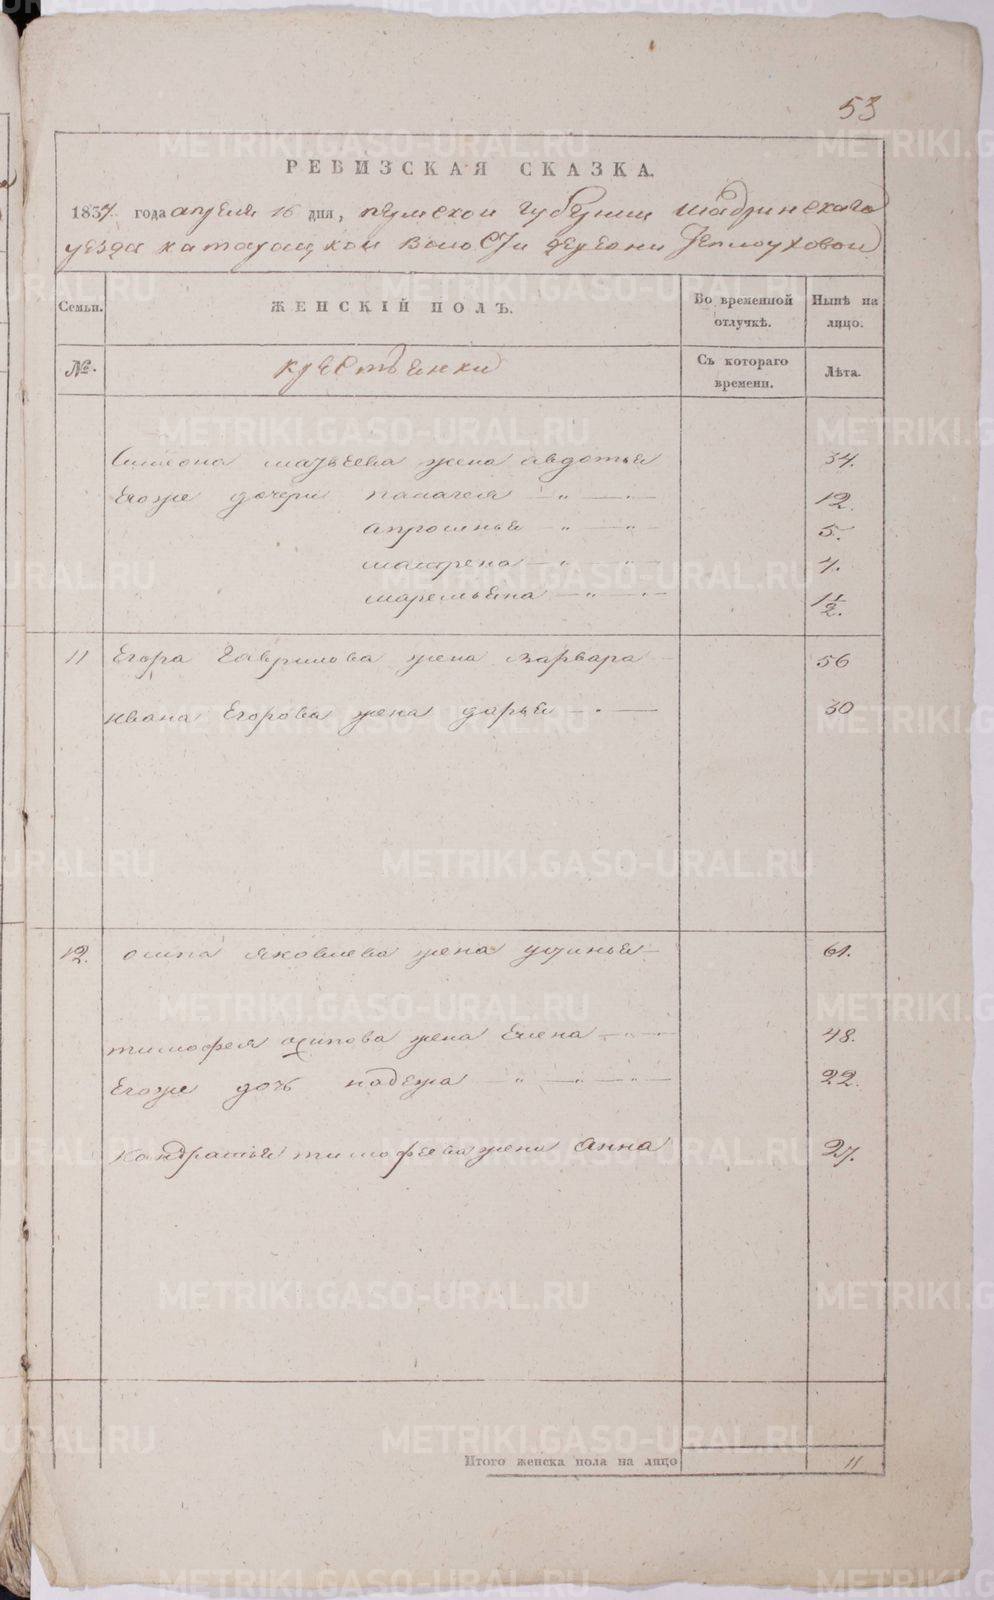 53
РЕВИЗСКАЯ СКАЗКА.
1834 года апреля 16 дня, пермской губернии шадринскаго
уезда катайской волости деревни Теплоуховой
Семьи. ЖЕНСКІЙ ПОЛЪ. Во временной отлучкѣ. Нынѣ на лицо.
№. крестьянки Съ котораго времени. Лѣта.
Симеона матвеева жена авдотья 34.
Егоже дочери палагея — „ — „ — 12.
апросинья — „ — „ — 5.
матрена — „ — „ — 4.
маремьяна — „ — „ — 1 1/2.
11 Егора Гаврилова жена варвара 56
ивана Егорова жена дарья — „ — 30
12. осипа яковлева жена устинья 61.
тимофея осипова жена Елена — „ — 48.
Егоже дочь надежа — „ — „ — „ — 22.
кандратья тимофеева жена анна 27.
Итого женска пола на лицо 11
METRIKI.GASO-URAL.RU